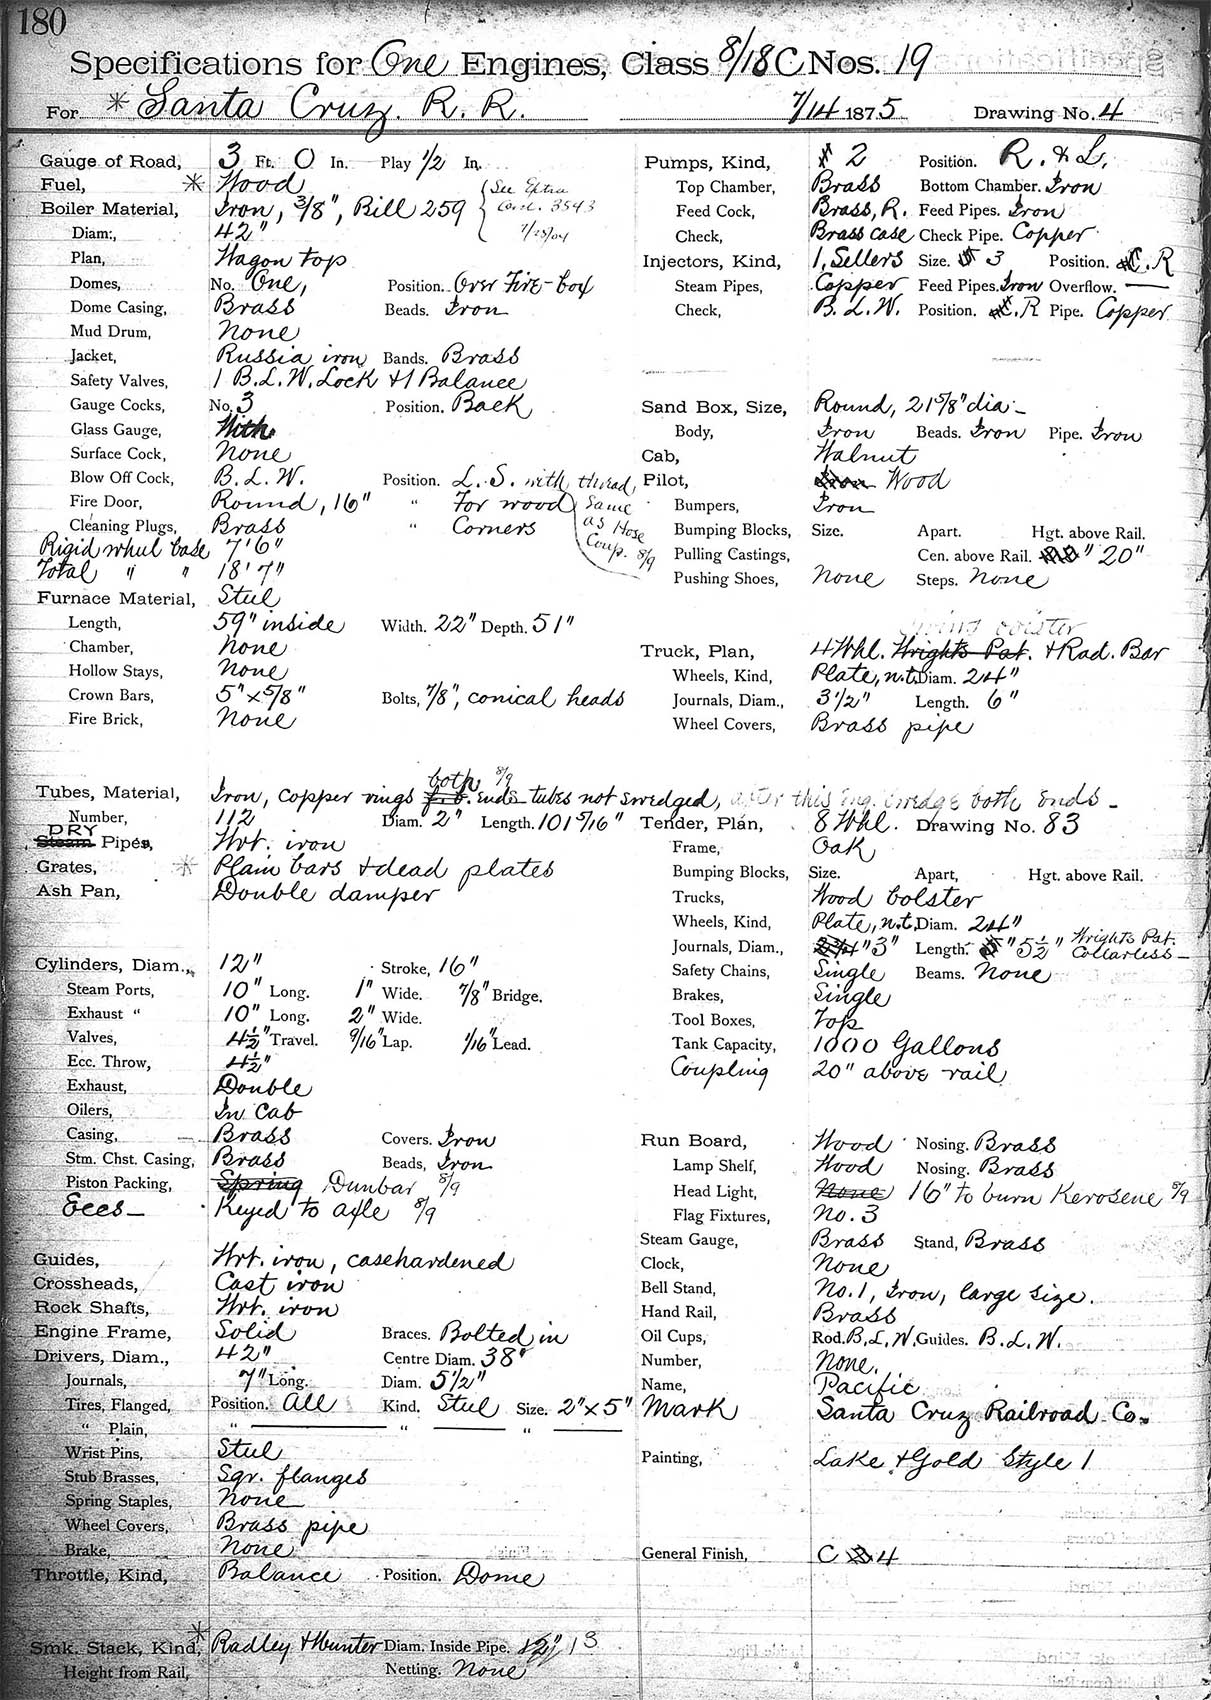 180
Specifications for One Engines, Class 8/18 C Nos. 19
For * Santa Cruz. R. R. 7/14 1875 Drawing No. 4
Gauge of Road, 3 Ft. 0 In. Play 1/2 In.
Fuel, * Wood
Boiler Material, Iron, 3/8", Bill 259 { See Extra
7/28/04
Diam:, 42"
Plan, Wagon top
Domes, No. One, Position. Over Fire-box
Dome Casing, Brass Beads. Iron
Mud Drum, None
Jacket, Russia iron Bands. Brass
Safety Valves, 1 B.L.W. Lock & 1 Balance
Gauge Cocks, No. 3 Position. Back
Glass Gauge, With
Surface Cock, None
Blow Off Cock, B. L. W. Position. L. S. with thread,
Fire Door, Round, 16" " For wood Same
Cleaning Plugs, Brass " Corners as Hose
Coup. 8/9
Rigid wheel base 7'6"
Total " " 18'7"
Furnace Material, Steel
Length, 59" inside Width. 22" Depth. 51"
Chamber, None
Hollow Stays, None
Crown Bars, 5" x 5/8" Bolts, 7/8", conical heads
Fire Brick, None
both 8/9
Tubes, Material, Iron, copper rings f. b. ends tubes not swedged, after this Eng. swedge both ends -
Number, 112 Diam. 2" Length. 101 5/16"
DRY
Steam Pipes, Wrt. iron
Grates, * Plain bars & dead plates
Ash Pan, Double damper
Cylinders, Diam., 12" Stroke, 16"
Steam Ports, 10" Long. 1" Wide. 7/8" Bridge.
Exhaust " 10" Long. 2" Wide.
Valves, 4 1/2" Travel. 9/16" Lap. 1/16" Lead.
Ecc. Throw, 4 1/2"
Exhaust, Double
Oilers, In Cab
Casing, Brass Covers. Iron
Stm. Chst. Casing, Brass Beads, Iron
Piston Packing, Spring Dunbar 8/9
Eccs- Keyed to axle 8/9
Guides, Wrt. iron, casehardened
Crossheads, Cast iron
Rock Shafts, Wrt. iron
Engine Frame, Solid Braces. Bolted in
Drivers, Diam., 42" Centre Diam. 38"
Journals, 7" Long. Diam. 5 1/2"
Tires, Flanged, Position. All Kind. Steel Size. 2" x 5"
" Plain, " " "
Wrist Pins, Steel
Stub Brasses, Sqr. flanges
Spring Staples, None
Wheel Covers, Brass pipe
Brake, None
Throttle, Kind, Balance Position. Dome
Smk. Stack, Kind, * Radley & Hunter Diam. Inside Pipe. 12" 13
Height from Rail, Netting. None
Pumps, Kind, 2 Position. R. & L.
Top Chamber, Brass Bottom Chamber. Iron
Feed Cock, Brass, R. Feed Pipes. Iron
Check, Brass case Check Pipe. Copper
Injectors, Kind, 1, Sellers Size. 3 Position. C. R
Steam Pipes, Copper Feed Pipes. Iron Overflow. —
Check, B. L. W. Position. C. R Pipe. Copper
Sand Box, Size, Round, 21 5/8" dia-
Body, Iron Beads. Iron Pipe. Iron
Cab, Walnut
Pilot, Iron Wood
Bumpers, Iron
Bumping Blocks, Size. Apart. Hgt. above Rail.
Pulling Castings, Cen. above Rail. " 20"
Pushing Shoes, None Steps. None
Swing bolster
Truck, Plan, 4 Whl. Wrights Pat. & Rad. Bar
Wheels, Kind, Plate, n.t. Diam. 24"
Journals, Diam., 3 1/2" Length. 6"
Wheel Covers, Brass pipe
Tender, Plan, 8 Whl. Drawing No. 83
Frame, Oak
Bumping Blocks, Size. Apart, Hgt. above Rail.
Trucks, Wood bolster
Wheels, Kind, Plate, n.t. Diam. 24"
Journals, Diam., 2 3/4" 3" Length. 5" 5 1/2" Wrights Pat. Collarless-
Safety Chains, Single Beams. None
Brakes, Single
Tool Boxes, Top
Tank Capacity, 1000 Gallons
Coupling 20" above rail
Run Board, Wood Nosing. Brass
Lamp Shelf, Wood Nosing. Brass
Head Light, None 16" to burn Kerosene 8/9
Flag Fixtures, No. 3
Steam Gauge, Brass Stand, Brass
Clock, None
Bell Stand, No. 1, Iron, large size.
Hand Rail, Brass
Oil Cups, Rod. B. L. W. Guides. B. L. W.
Number, None.
Name, Pacific
Mark Santa Cruz Railroad Co.
Painting, Lake & Gold Style 1
General Finish, C 4